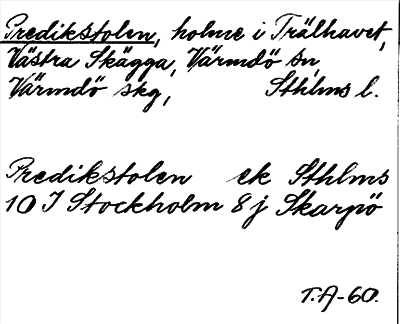 Predikstolen, holme i Trälhavet,
Västra Skägga, Värmdö sn,
Värmdö skg, Sthlms l.
Predikstolen ek Sthlms
10 I Stockholm 8 j Skarpö
T.A-60.